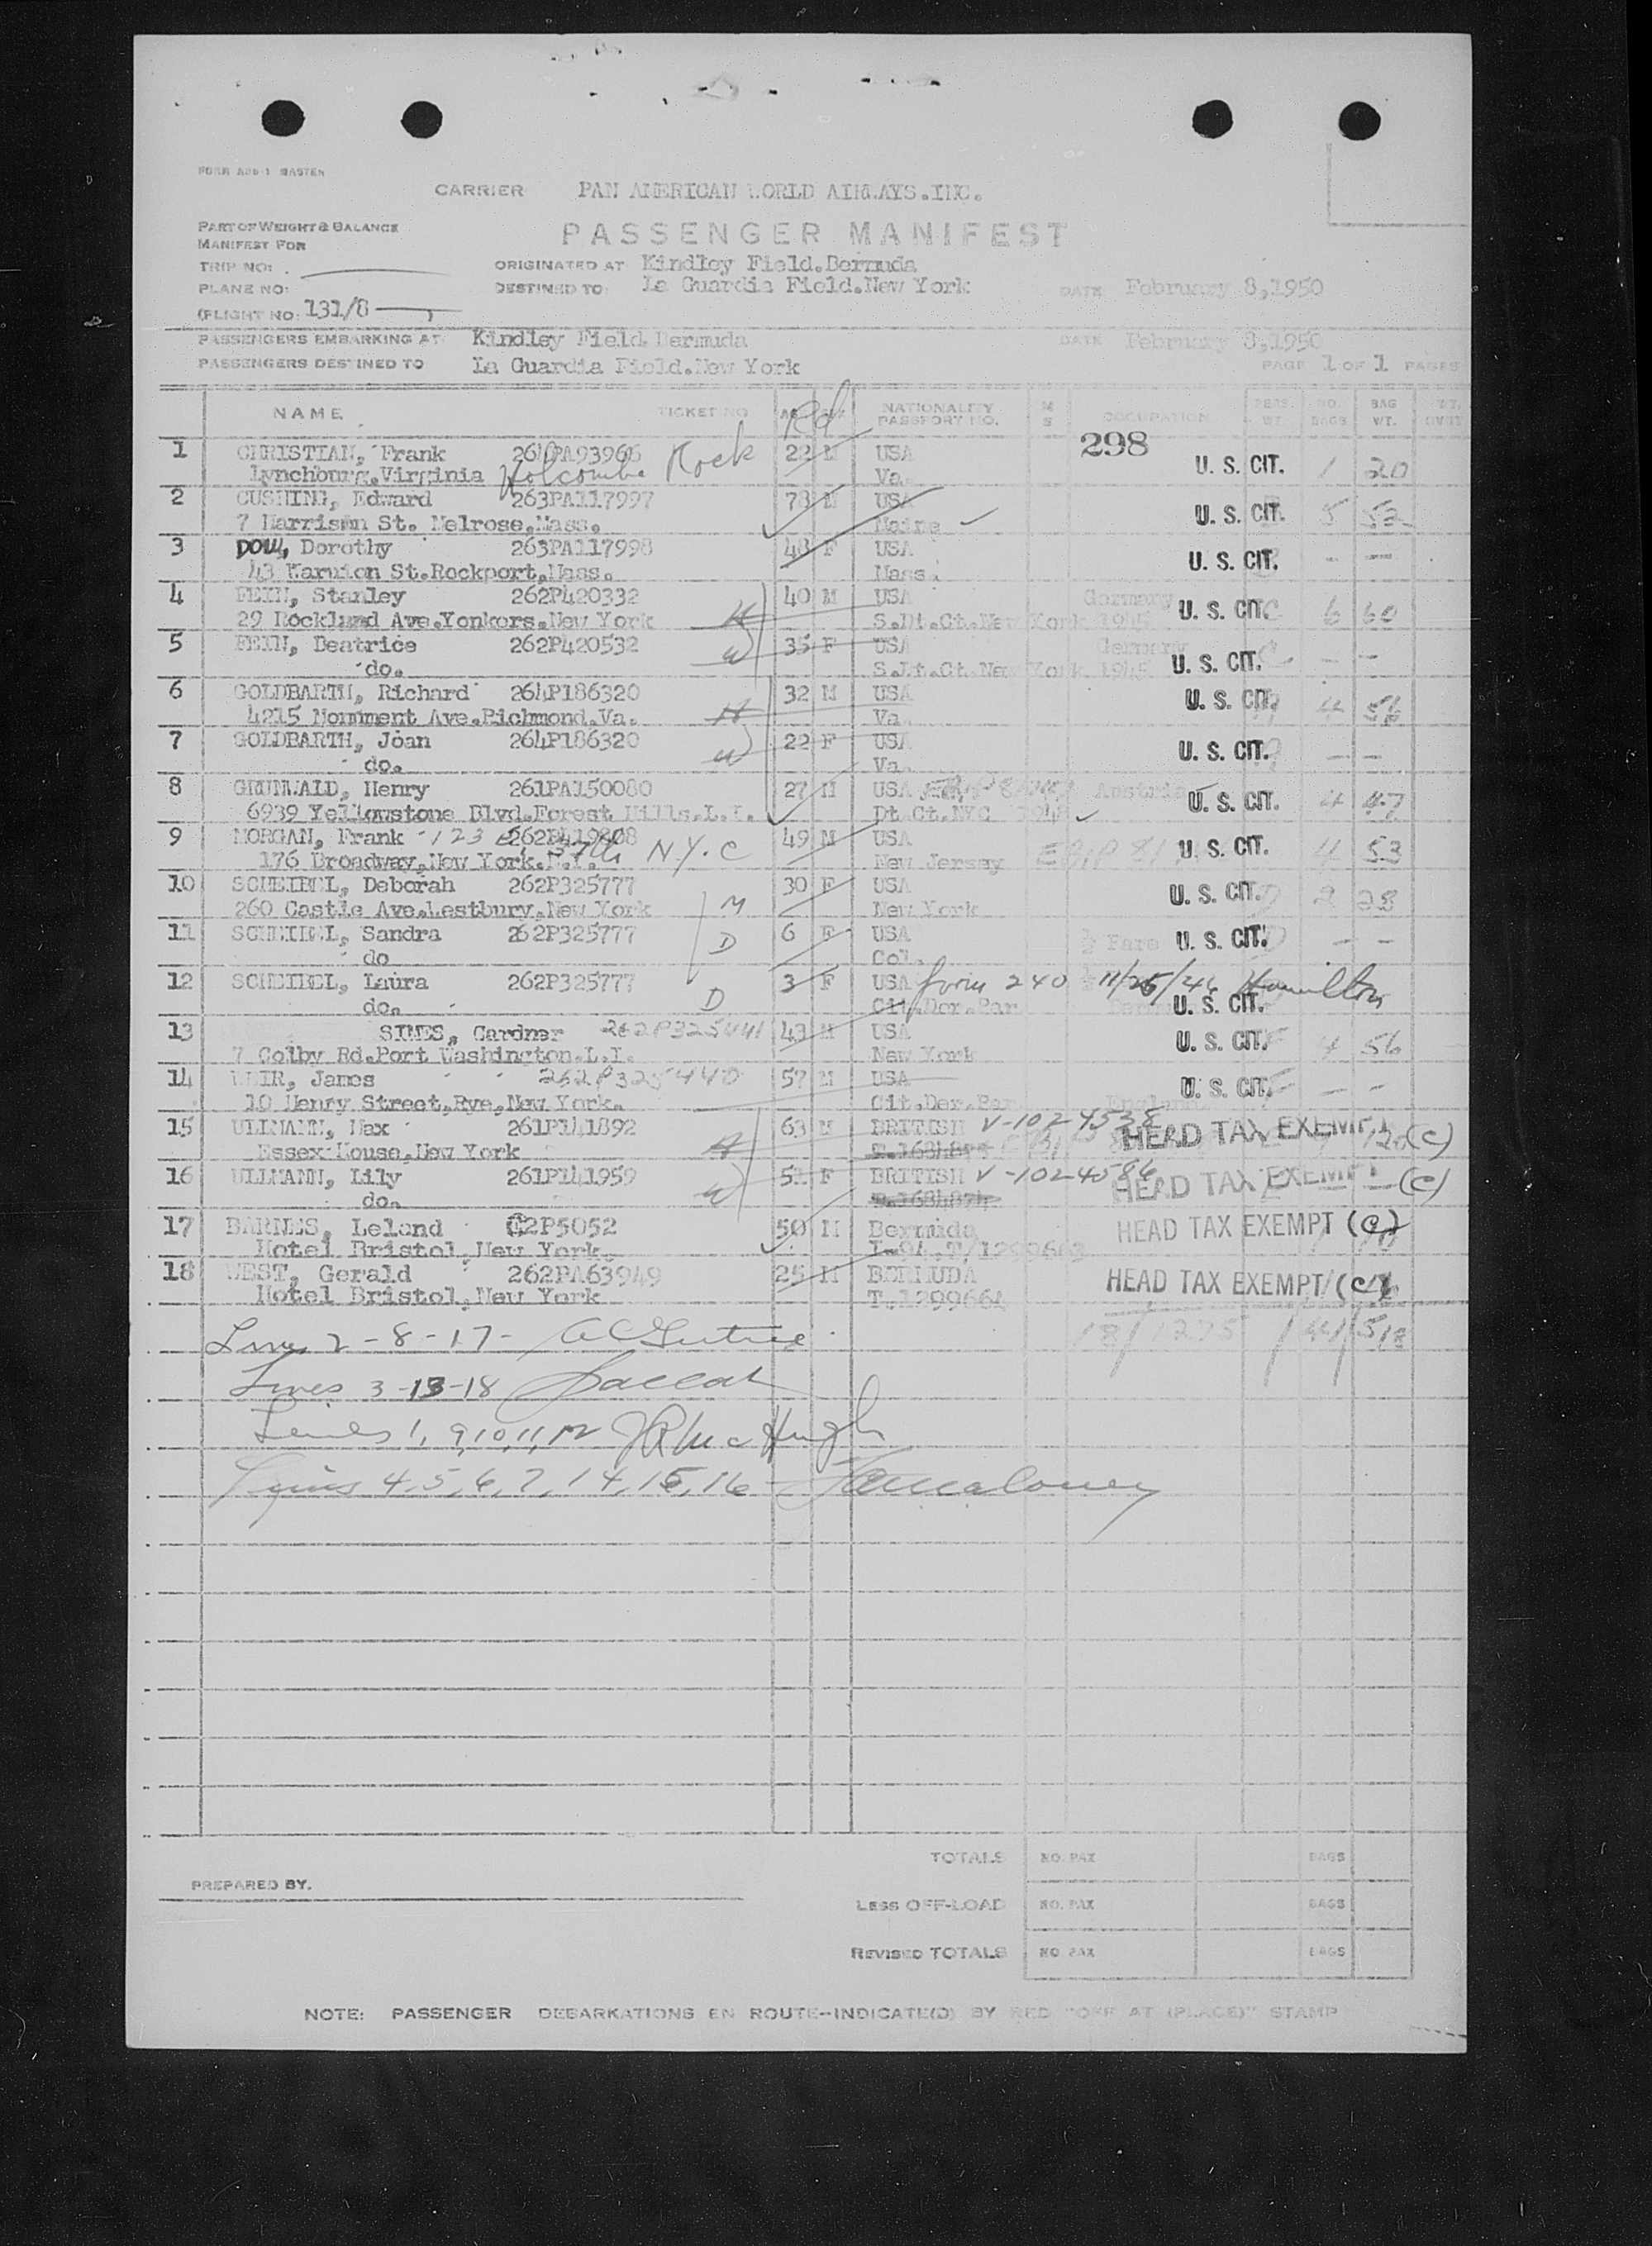 FORM ADD-1 MASTER
CARRIER PAN AMERICAN WORLD AIRWAYS.INC.
PART OF WEIGHT & BALANCE
MANIFEST FOR
PASSENGER MANIFEST
TRIP NO: ORIGINATED AT Kindley Field.Bermuda
PLANE NO: DESTINED TO: La Guardia Field.New York DATE February 8,1950
(FLIGHT NO: 131/8
PASSENGERS EMBARKING AT Kindley Field.Bermuda DATE February 8,1950
PASSENGERS DESTINED TO La Guardia Field.New York PAGE 1 OF 1 PAGES
NAME TICKET NO. NATIONALITY PASSPORT NO. M S OCCUPATION PERS. WT. NO. BAGS BAG WT.
298
1 CHRISTIAN, Frank 264PA93966 22 M USA U. S. CIT. 1 20
Lynchburg.Virginia Holcombe Rock Va.
2 CUSHING, Edward 263PA117997 78 M USA U. S. CIT. 5 52
7 Harrison St. Melrose,Mass. Maine
3 DOW, Dorothy 263PA117998 48 F USA U. S. CIT. - -
Rockport,Mass. Mass.
4 FEIN, Stanley 262P420332 40 M USA Germany U. S. CIT. 6 60
29 Rockland Ave.Yonkers.New York H S.Dt.Ct.New York 1945
5 FEIN, Beatrice 262P420532 35 F USA Germany U. S. CIT. - -
do. W S.Dt.Ct.New York 1945
6 GOLDBARTH, Richard 264P186320 32 M USA U. S. CIT. 4 56
4215 Monument Ave.Richmond.Va. H Va.
7 GOLDBARTH, Joan 264P186320 22 F USA U. S. CIT. - -
do. W Va.
8 GRUNWALD, Henry 261PA150080 27 M USA Austria U. S. CIT. 4 47
6939 Yellowstone Blvd.Forest Hills.L.I. Dt.Ct.NYC
9 MORGAN, Frank 123 E 37th N.Y.C 49 M USA U. S. CIT. 4 53
176 Broadway,New York.N.Y. New Jersey
10 SCHEIBEL, Deborah 262P325777 30 F USA U. S. CIT. 2 28
260 Castle Ave.Westbury,New York M New York
11 SCHEIBEL, Sandra 262P325777 6 F USA ½ Fare U. S. CIT. - -
do D Col.
12 SCHEIBEL, Laura 262P325777 3 F USA form 240 11/25/46 Hamilton
do. D Cit.Der.Par. U. S. CIT.
13 SIMES, Gardner 262P325441 43 M USA U. S. CIT. 4 56
7 Colby Rd.Port Washington.L.I. New York
14 WEIR, James 262P325440 57 M USA U. S. CIT. - -
10 Henry Street,Rye,New York. Cit.Der.Par. England
15 ULLMANN, Max 261P141892 63 M BRITISH V-1024538 HEAD TAX EXEMPT (C)
Essex House,New York H
16 ULLMANN, Lily 261P141959 F BRITISH V-1024586 HEAD TAX EXEMPT (C)
do. W
17 BARNES, Leland 50 M Bermuda HEAD TAX EXEMPT (C)
Hotel Bristol,New York
18 WEST, Gerald 262PA63949 25 M BERMUDA HEAD TAX EXEMPT (C)
Hotel Bristol,New York T.129966
18 1275 41 518
Lines 2-8-17-
Lines 3-13-18
Lines 1, 9,10,11,12 McHugh
Lines 4,5,6,7,14,15,16 - Maloney
TOTALS NO. PAX BAGS
PREPARED BY.
LESS OFF-LOAD NO. PAX BAGS
REVISED TOTALS NO PAX BAGS
NOTE: PASSENGER DEBARKATIONS EN ROUTE--INDICATE(D) BY RED "OFF AT (PLACE)" STAMP